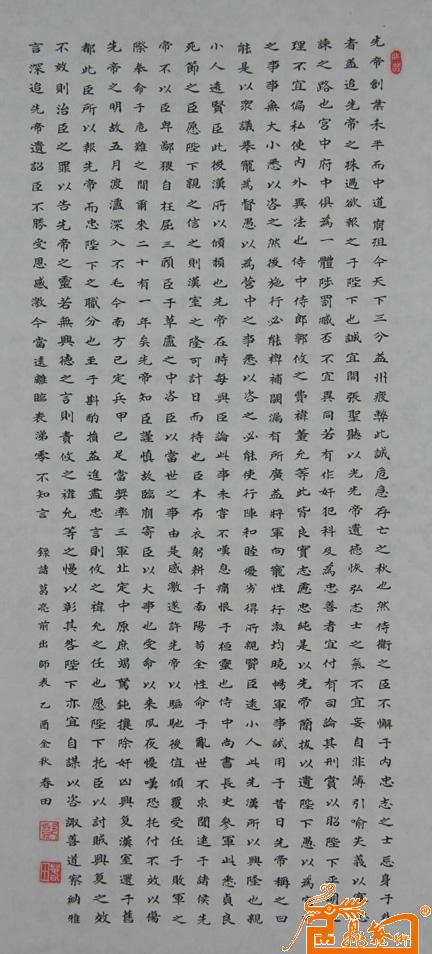 先帝創業未半而中道崩殂今天下三分益州疲弊此誠危急存亡之秋也然侍衛之臣不懈于內忠志之士忘身于外
者蓋追先帝之殊遇欲報之于陛下也誠宜開張聖聽以光先帝遺德恢弘志士之氣不宜妄自菲薄引喻失義以塞忠
諫之路也宮中府中俱為一體陟罰臧否不宜異同若有作奸犯科及為忠善者宜付有司論其刑賞以昭陛下平明之
理不宜偏私使內外異法也侍中侍郎郭攸之費禕董允等此皆良實志慮忠純是以先帝簡拔以遺陛下愚以為宮中
之事事無大小悉以咨之然後施行必能裨補闕漏有所廣益將軍向寵性行淑均曉暢軍事試用于昔日先帝稱之曰
能是以眾議舉寵為督愚以為營中之事悉以咨之必能使行陣和睦優劣得所親賢臣遠小人此先漢所以興隆也親
小人遠賢臣此後漢所以傾頹也先帝在時每與臣論此事未嘗不嘆息痛恨于桓靈也侍中尚書長史參軍此悉貞良
死節之臣愿陛下親之信之則漢室之隆可計日而待也臣本布衣躬耕于南陽苟全性命于亂世不求聞達于諸侯先
帝不以臣卑鄙猥自枉屈三顧臣于草廬之中咨臣以當世之事由是感激遂許先帝以驅馳後值傾覆受任于敗軍之
際奉命于危難之間爾來二十有一年矣先帝知臣謹慎故臨崩寄臣以大事也受命以來夙夜憂嘆恐托付不效以傷
先帝之明故五月渡瀘深入不毛今南方已定兵甲已足當獎率三軍北定中原庶竭駑鈍攘除奸凶興復漢室還于舊
都此臣所以報先帝而忠陛下之職分也至于斟酌損益進盡忠言則攸之禕允之任也愿陛下托臣以討賊興復之效
不效則治臣之罪以告先帝之靈若無興德之言則責攸之禕允等之慢以彰其咎陛下亦宜自謀以咨諏善道察納雅
言深追先帝遺詔臣不勝受恩感激今當遠離臨表涕零不知言
錄諸葛亮前出師表乙酉金秋春田